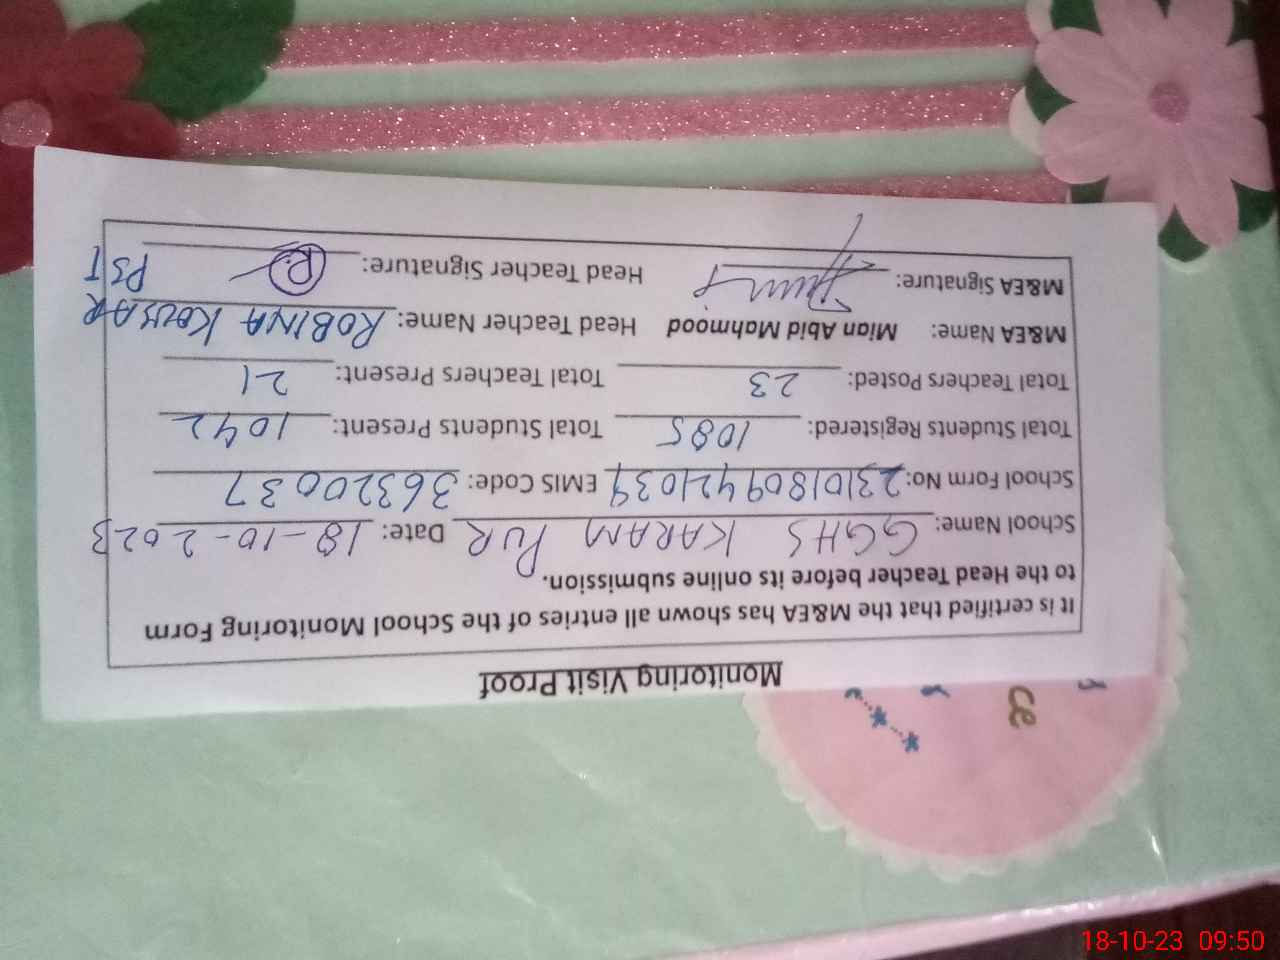 Monitoring Visit Proof
It is certified that the M&EA has shown all entries of the School Monitoring Form
to the Head Teacher before its online submission.
School Name: GGHS KARAM PUR Date: 18-10-2023
School Form No: 23101809421039 EMIS Code: 36320037
Total Students Registered: 1085 Total Students Present: 1042
Total Teachers Posted: 23 Total Teachers Present: 21
M&EA Name: Mian Abid Mahmood Head Teacher Name: ROBINA KOUSAR
PST
M&EA Signature: Head Teacher Signature: R
18-10-23 09:50